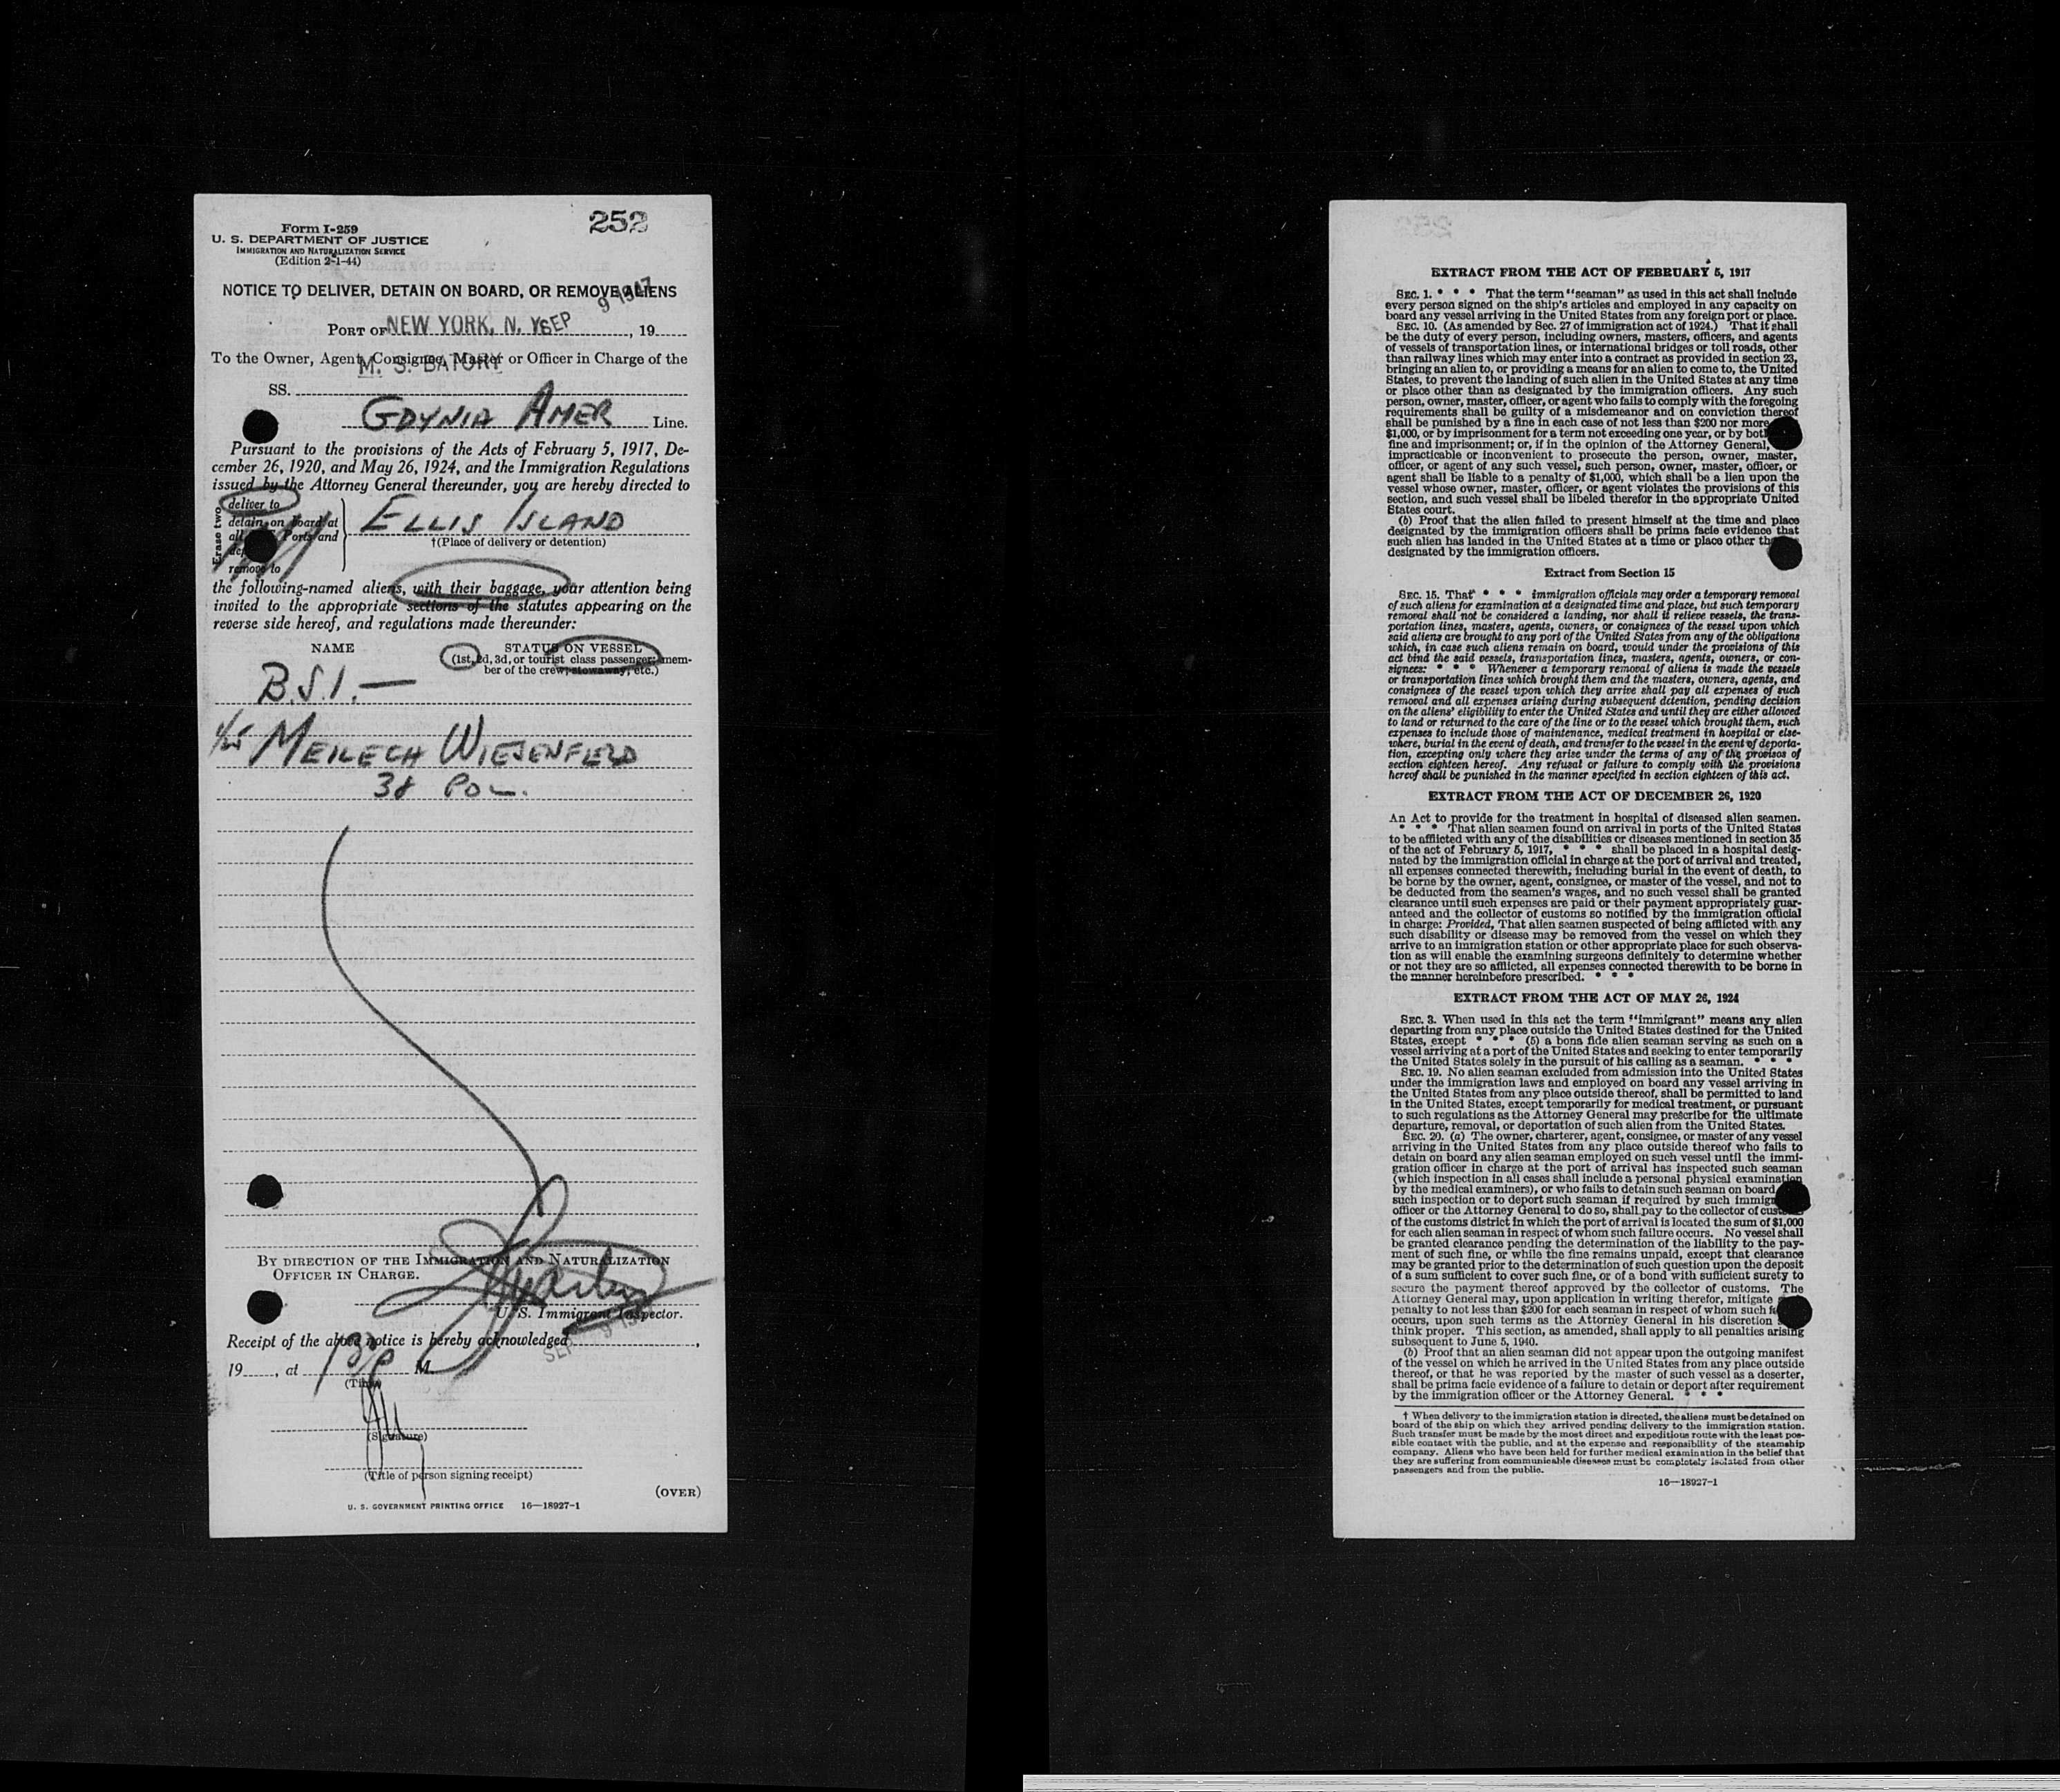 Form I-259
U. S. DEPARTMENT OF JUSTICE
IMMIGRATION AND NATURALIZATION SERVICE
(Edition 2-1-44)
252
NOTICE TO DELIVER, DETAIN ON BOARD, OR REMOVE ALIENS
PORT OF NEW YORK, N. Y. SEP 9 1947, 19
To the Owner, Agent, Consignee, Master or Officer in Charge of the
M. S. BATORY
SS.
GDYNIA AMER Line.
Pursuant to the provisions of the Acts of February 5, 1917, De-
cember 26, 1920, and May 26, 1924, and the Immigration Regulations
issued by the Attorney General thereunder, you are hereby directed to
Erase two
deliver to
detain on board at
all Ports and
remove to
ELLIS ISLAND
†(Place of delivery or detention)
the following-named aliens, with their baggage, your attention being
invited to the appropriate sections of the statutes appearing on the
reverse side hereof, and regulations made thereunder:
NAME
STATUS ON VESSEL
(1st, 2d, 3d, or tourist class passenger; mem-
ber of the crew; stowaway, etc.)
B.S.I. —
MEILECH WIESENFELD
38 POL.
BY DIRECTION OF THE IMMIGRATION AND NATURALIZATION
OFFICER IN CHARGE.
U. S. Immigrant Inspector.
Receipt of the above notice is hereby acknowledged,
SEP 9
19, at M.
(Time)
(Signature)
(Title of person signing receipt)
(OVER)
U. S. GOVERNMENT PRINTING OFFICE 16—18927-1
EXTRACT FROM THE ACT OF FEBRUARY 5, 1917
SEC. 1. * * * That the term "seaman" as used in this act shall include
every person signed on the ship's articles and employed in any capacity on
board any vessel arriving in the United States from any foreign port or place.
SEC. 10. (As amended by Sec. 27 of immigration act of 1924.) That it shall
be the duty of every person, including owners, masters, officers, and agents
of vessels of transportation lines, or international bridges or toll roads, other
than railway lines which may enter into a contract as provided in section 23,
bringing an alien to, or providing a means for an alien to come to, the United
States, to prevent the landing of such alien in the United States at any time
or place other than as designated by the immigration officers. Any such
person, owner, master, officer, or agent who fails to comply with the foregoing
requirements shall be guilty of a misdemeanor and on conviction thereof
shall be punished by a fine in each case of not less than $200 nor more
$1,000, or by imprisonment for a term not exceeding one year, or by both
fine and imprisonment; or, if in the opinion of the Attorney General,
impracticable or inconvenient to prosecute the person, owner, master,
officer, or agent of any such vessel, such person, owner, master, officer, or
agent shall be liable to a penalty of $1,000, which shall be a lien upon the
vessel whose owner, master, officer, or agent violates the provisions of this
section, and such vessel shall be libeled therefor in the appropriate United
States court.
(b) Proof that the alien failed to present himself at the time and place
designated by the immigration officers shall be prima facie evidence that
such alien has landed in the United States at a time or place other
designated by the immigration officers.
Extract from Section 15
SEC. 15. That * * * immigration officials may order a temporary removal
of such aliens for examination at a designated time and place, but such temporary
removal shall not be considered a landing, nor shall it relieve vessels, the trans-
portation lines, masters, agents, owners, or consignees of the vessel upon which
said aliens are brought to any port of the United States from any of the obligations
which, in case such aliens remain on board, would under the provisions of this
act bind the said vessels, transportation lines, masters, agents, owners, or con-
signees: * * * Whenever a temporary removal of aliens is made the vessels
or transportation lines which brought them and the masters, owners, agents, and
consignees of the vessel upon which they arrive shall pay all expenses of such
removal and all expenses arising during subsequent detention, pending decision
on the aliens' eligibility to enter the United States and until they are either allowed
to land or returned to the care of the line or to the vessel which brought them, such
expenses to include those of maintenance, medical treatment in hospital or else-
where, burial in the event of death, and transfer to the vessel in the event of deporta-
tion, excepting only where they arise under the terms of any of the provisos of
section eighteen hereof. Any refusal or failure to comply with the provisions
hereof shall be punished in the manner specified in section eighteen of this act.
EXTRACT FROM THE ACT OF DECEMBER 26, 1920
An Act to provide for the treatment in hospital of diseased alien seamen.
* * * That alien seamen found on arrival in ports of the United States
to be afflicted with any of the disabilities or diseases mentioned in section 35
of the act of February 5, 1917, * * * shall be placed in a hospital desig-
nated by the immigration official in charge at the port of arrival and treated,
all expenses connected therewith, including burial in the event of death, to
be borne by the owner, agent, consignee, or master of the vessel, and not to
be deducted from the seamen's wages, and no such vessel shall be granted
clearance until such expenses are paid or their payment appropriately guar-
anteed and the collector of customs so notified by the immigration official
in charge: Provided, That alien seamen suspected of being afflicted with any
such disability or disease may be removed from the vessel on which they
arrive to an immigration station or other appropriate place for such observa-
tion as will enable the examining surgeons definitely to determine whether
or not they are so afflicted, all expenses connected therewith to be borne in
the manner hereinbefore prescribed. * * *
EXTRACT FROM THE ACT OF MAY 26, 1924
SEC. 3. When used in this act the term "immigrant" means any alien
departing from any place outside the United States destined for the United
States, except * * * (5) a bona fide alien seaman serving as such on a
vessel arriving at a port of the United States and seeking to enter temporarily
the United States solely in the pursuit of his calling as a seaman. * * *
SEC. 19. No alien seaman excluded from admission into the United States
under the immigration laws and employed on board any vessel arriving in
the United States from any place outside thereof, shall be permitted to land
in the United States, except temporarily for medical treatment, or pursuant
to such regulations as the Attorney General may prescribe for the ultimate
departure, removal, or deportation of such alien from the United States.
SEC. 20. (a) The owner, charterer, agent, consignee, or master of any vessel
arriving in the United States from any place outside thereof who fails to
detain on board any alien seaman employed on such vessel until the immi-
gration officer in charge at the port of arrival has inspected such seaman
(which inspection in all cases shall include a personal physical examination
by the medical examiners), or who fails to detain such seaman on board
such inspection or to deport such seaman if required by such
officer or the Attorney General to do so, shall pay to the collector of
of the customs district in which the port of arrival is located the sum of $1,000
for each alien seaman in respect of whom such failure occurs. No vessel shall
be granted clearance pending the determination of the liability to the pay-
ment of such fine, or while the fine remains unpaid, except that clearance
may be granted prior to the determination of such question upon the deposit
of a sum sufficient to cover such fine, or of a bond with sufficient surety to
secure the payment thereof approved by the collector of customs. The
Attorney General may, upon application in writing therefor, mitigate
penalty to not less than $200 for each seaman in respect of whom such
occurs, upon such terms as the Attorney General in his discretion
think proper. This section, as amended, shall apply to all penalties arising
subsequent to June 5, 1940.
(b) Proof that an alien seaman did not appear upon the outgoing manifest
of the vessel on which he arrived in the United States from any place outside
thereof, or that he was reported by the master of such vessel as a deserter,
shall be prima facie evidence of a failure to detain or deport after requirement
by the immigration officer or the Attorney General. * * *
† When delivery to the immigration station is directed, the aliens must be detained on
board of the ship on which they arrived pending delivery to the immigration station.
Such transfer must be made by the most direct and expeditious route with the least pos-
sible contact with the public, and at the expense and responsibility of the steamship
company. Aliens who have been held for further medical examination in the belief that
they are suffering from communicable diseases must be completely isolated from other
passengers and from the public.
16—18927-1